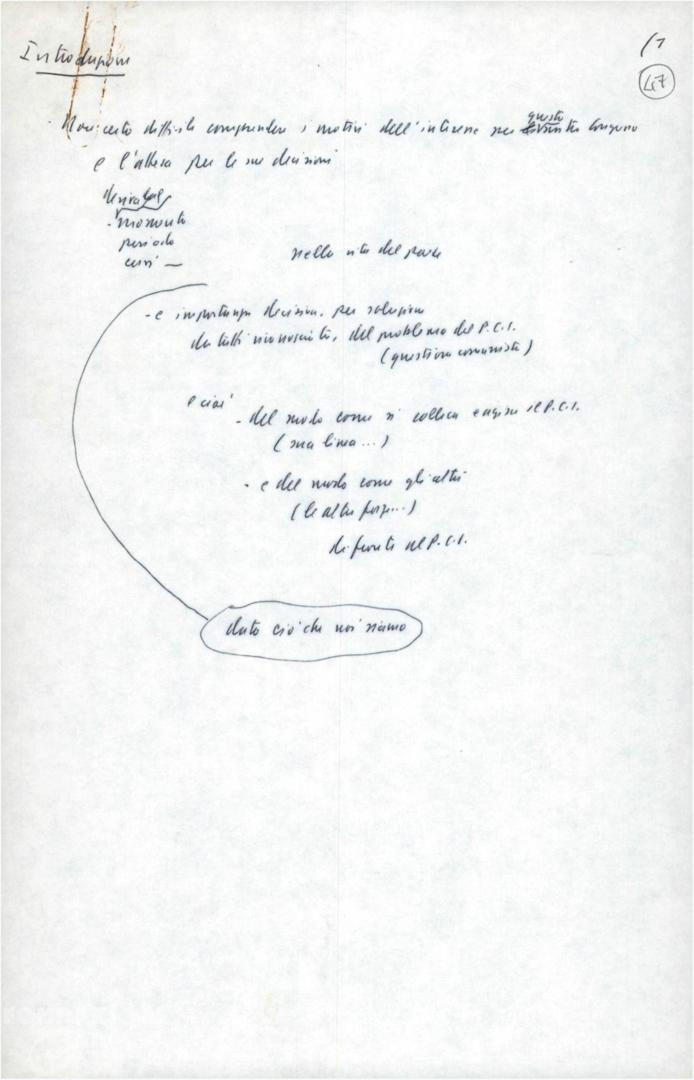 Introduzione
/1
47
- Non è certo difficile comprendere i motivi dell'interesse per questo congresso
e l'attesa per le sue decisioni
- momento
periodo
così —
nella vita del paese
- e importanza decisiva, per soluzione
da tutti riconosciuta, del problema del P.C.I.
(questione comunista)
e cioè
- del modo come si colloca e agisce il P.C.I.
(sua linea...)
- e del modo come gli altri
(le altre forze...)
di fronte al P.C.I.
dato ciò che noi siamo